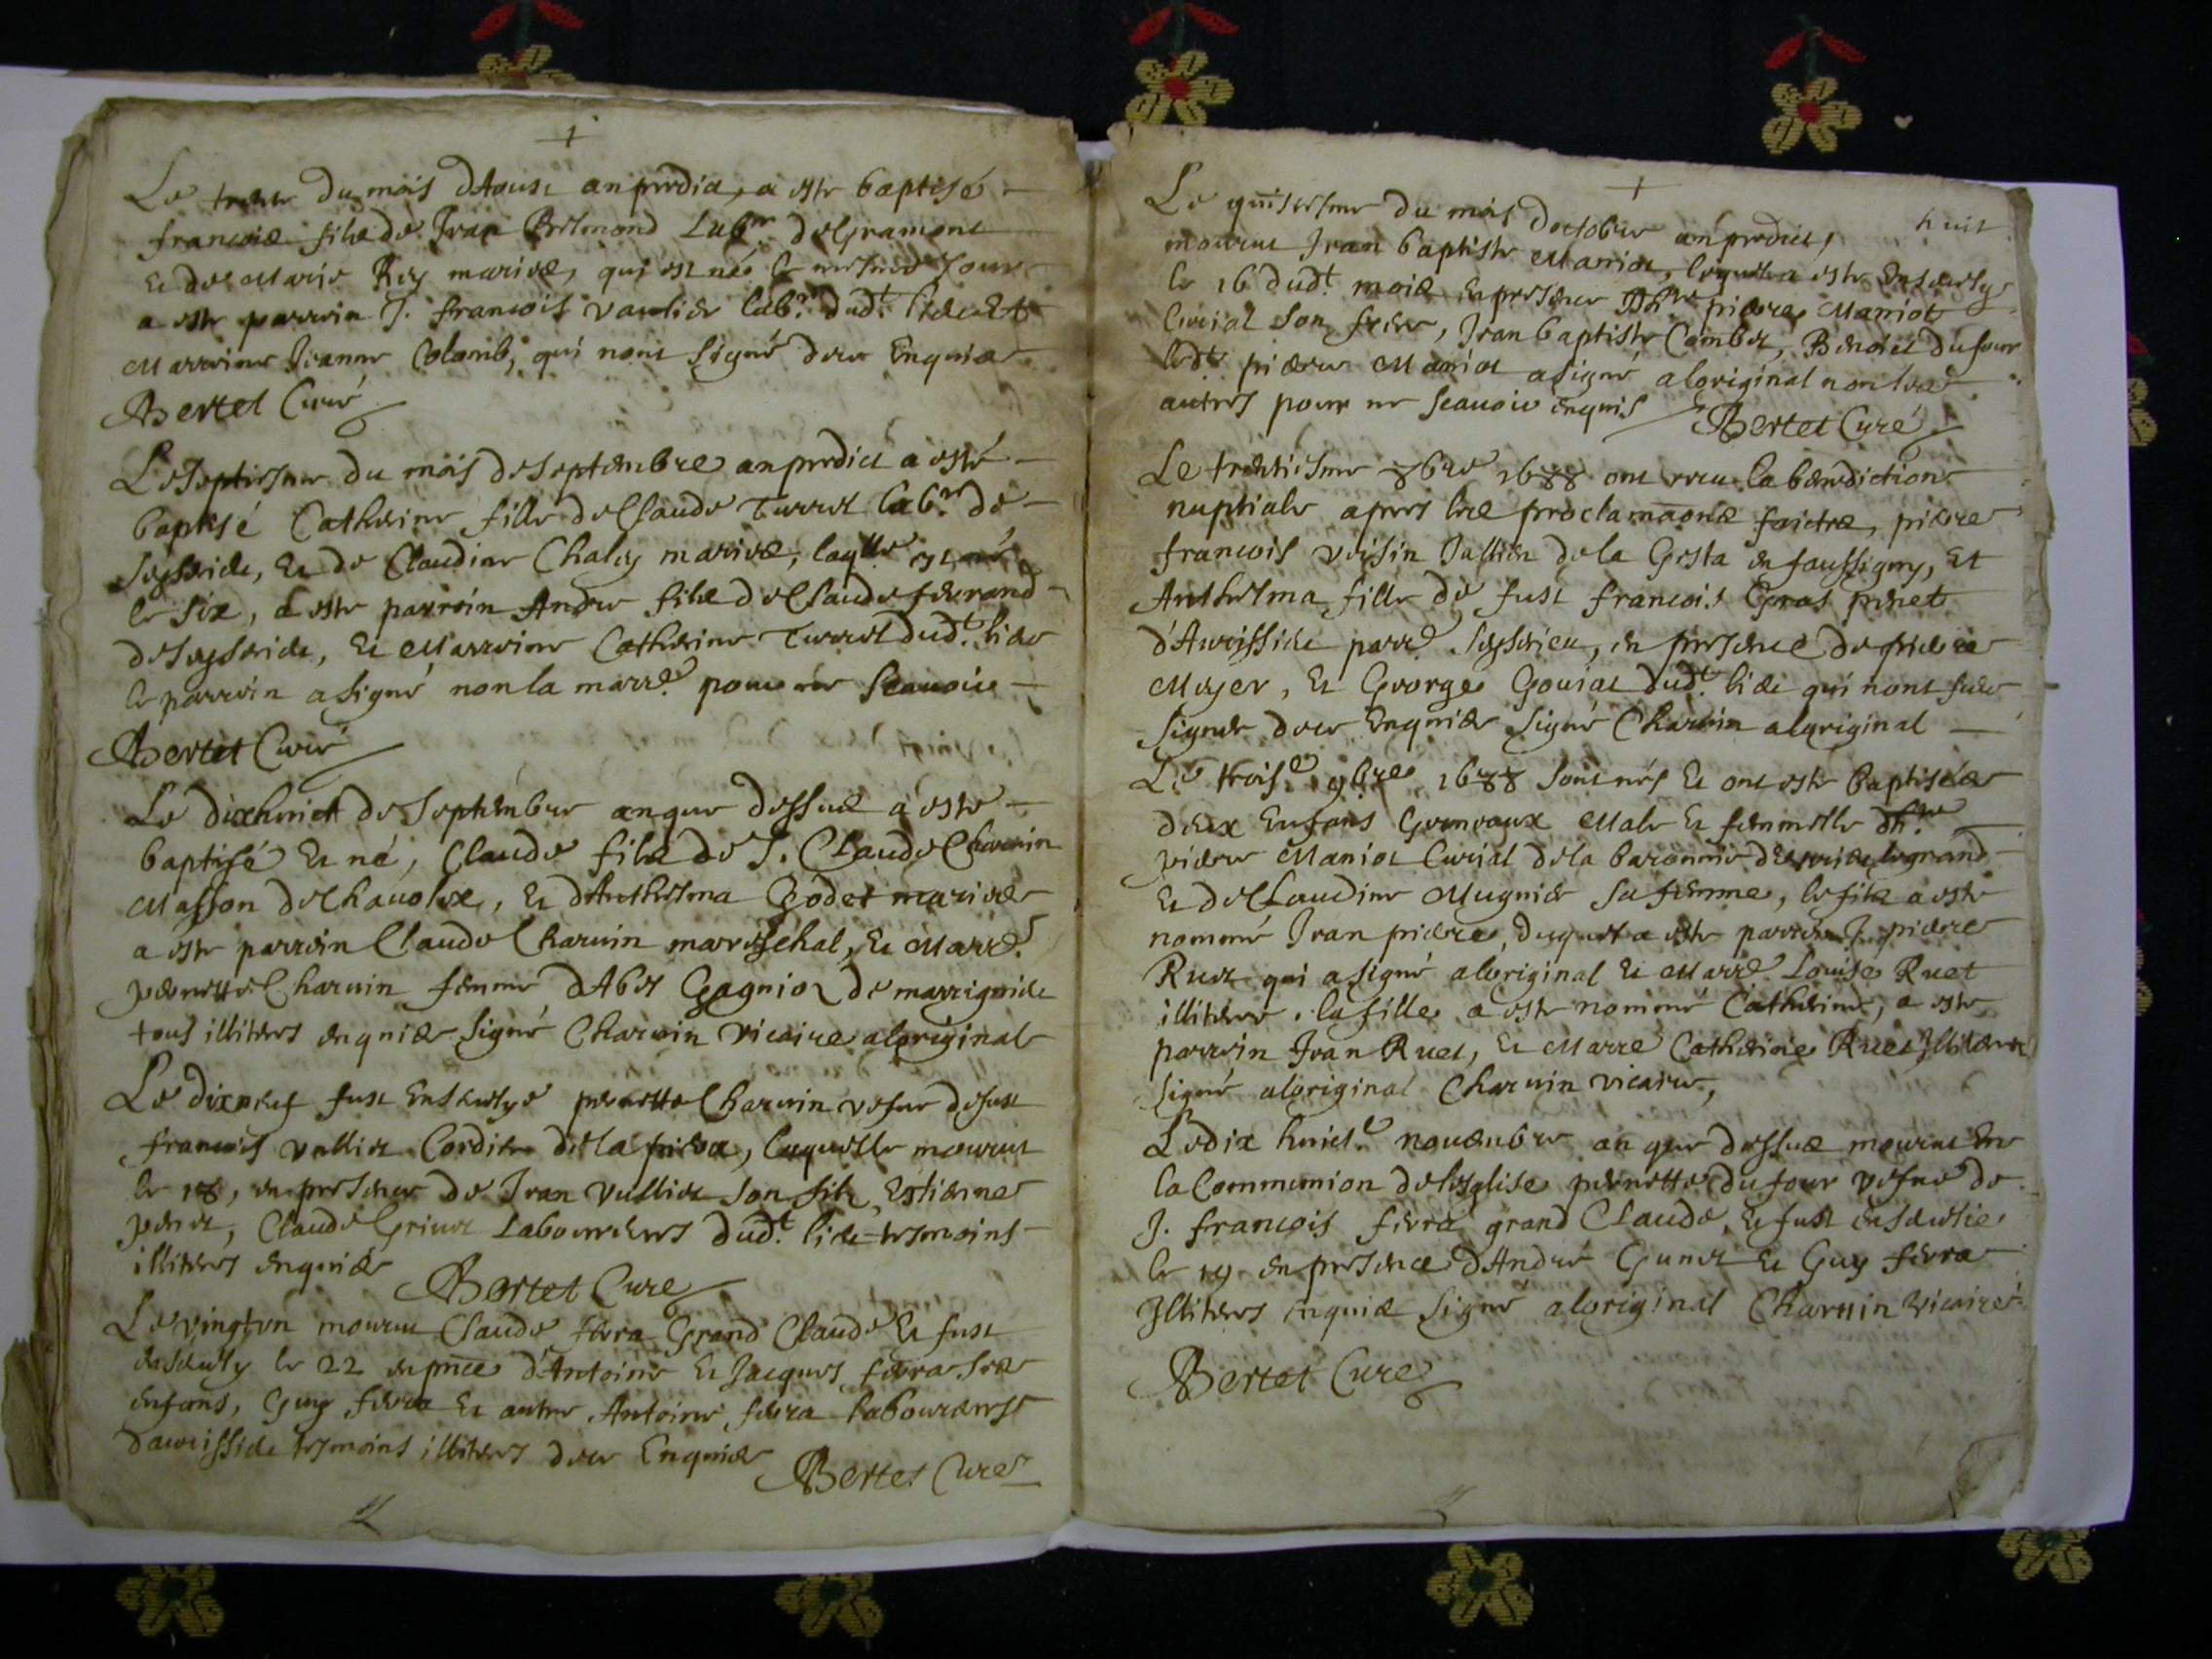 Le trente du mois d'Aoust an predict, a este baptisé
francois fils de Jean Bremond Lab.r de Gramont
et de Marie Rey mariés, qui est né le mesme jour
a este parrein J. francois Vaulier lab.r dud.t lieu et
Marreine Jeanne Colomb, qui nont signé deue Enquis
Bertet Curé
Le Septiesme du mois de Septembre an predict a esté
baptisé Catherine fille de Claude Turrel lab.r de
Seysseriele, et de Claudine Chaley mariés, laq.lle est né
le six, a este parrein Andre fils de Claude ferrand
de Seysseriele, et Marreine Catherine Turrel dud.t lieu
le parrein a signé non la marr.e pour ne scauoir
Bertet Curé
Le dixhuict de Septembre an que dessus a este
baptisé et né, Claude fils de J. Claude Charuin
Masson de Chauoley, et d'Anthelma Godet mariés
a este parrein Claude Charuin mareschal, et Marr.e
pernette Charuin femme d'Abel Gagnion de marrignieu
tous illiteres enquis signé Charuin vicaire aloriginal
Le dixneuf fust Ensevelye pernette Charuin vefue defust
francois vullier Cordier de la , laquelle mourut
le 18, en presence de Jean Vullier son fils, Estienne
peret, Claude Griuel Laboureurs dud.t lieu tesmoins
illiteres enquis Bertet Cure
Le vingt un mourut Claude ferra Grand Claude et fust
ensevely le 22 en pnce d'Antoine et Jacques ferra ses
enfans, Guy ferra et autre Antoine ferra laboureurs
d'aueissieu tesmoins illiteres deue Enquis
Bertet Cure
huit
Le quisiesme du mois d'octobre an predict,
mourut Jean baptiste Manior, lequel a este Ensevely
le 16 dud.t mois en presence pierre Manior
Curial son frere, Jean baptiste Combet, Benoict dufour
led.t pierre Manior a signé aloriginal non les
autres pour ne scauoir enquis Bertet Curé
Le trentiesme 8bre 1688 ont receu la benediction
nuptiale apres les proclamaons faictes, pierre
francois voisin Jullien de la Costa en faussigny, et
Anthelma fille de fust francois Gros perret
d'Aveissieu parr.e Seyserieu, en presence de pierre
Meyer, et George Goujat dud.t lieu qui nont sceu
signer deue Enquis signé Charuin aloriginal
Le trois.e 9bre 1688 sont nés et ont este baptisés
deux Enfans Gemeaux Male et femmelle
pierre Manior Curial de la baronnie legrand
et de Claudine Mugnier sa femme, le fils a este
nommé Jean pierre, duquel a este parrein J. pierre
Ruet qui a signé aloriginal et Marr.e Louise Ruet
illitere. la fille a este nommé Catherine, a este
parrein Jean Ruet, et Marre Catherine Ruet Illiteres
signé aloriginal Charuin vicaire,
Le dix huict.e nouembre an que dessus mourut En
la Communion de lesglise pernette dufour vefue de
J. francois ferra grand Claude, et fust enseuelie
le 19 en presence d'André Gunet et Guy ferra
Illiteres enquis signé aloriginal Charuin vicaire
Bertet Cure